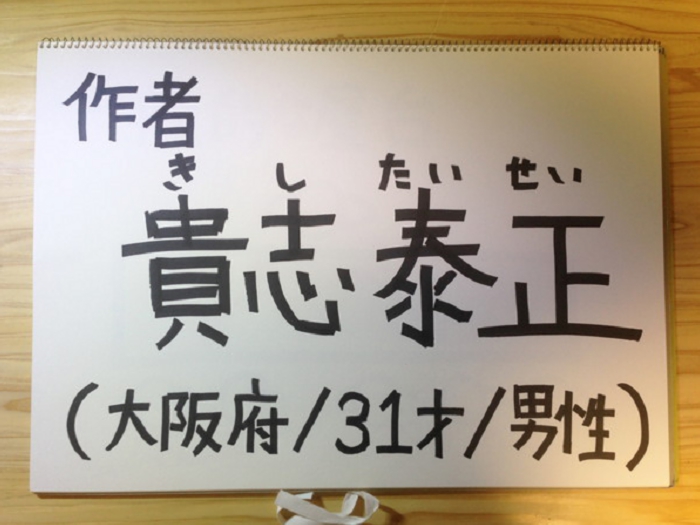 作者
き し たい せい
貴志泰正
(大阪府/31才/男性)